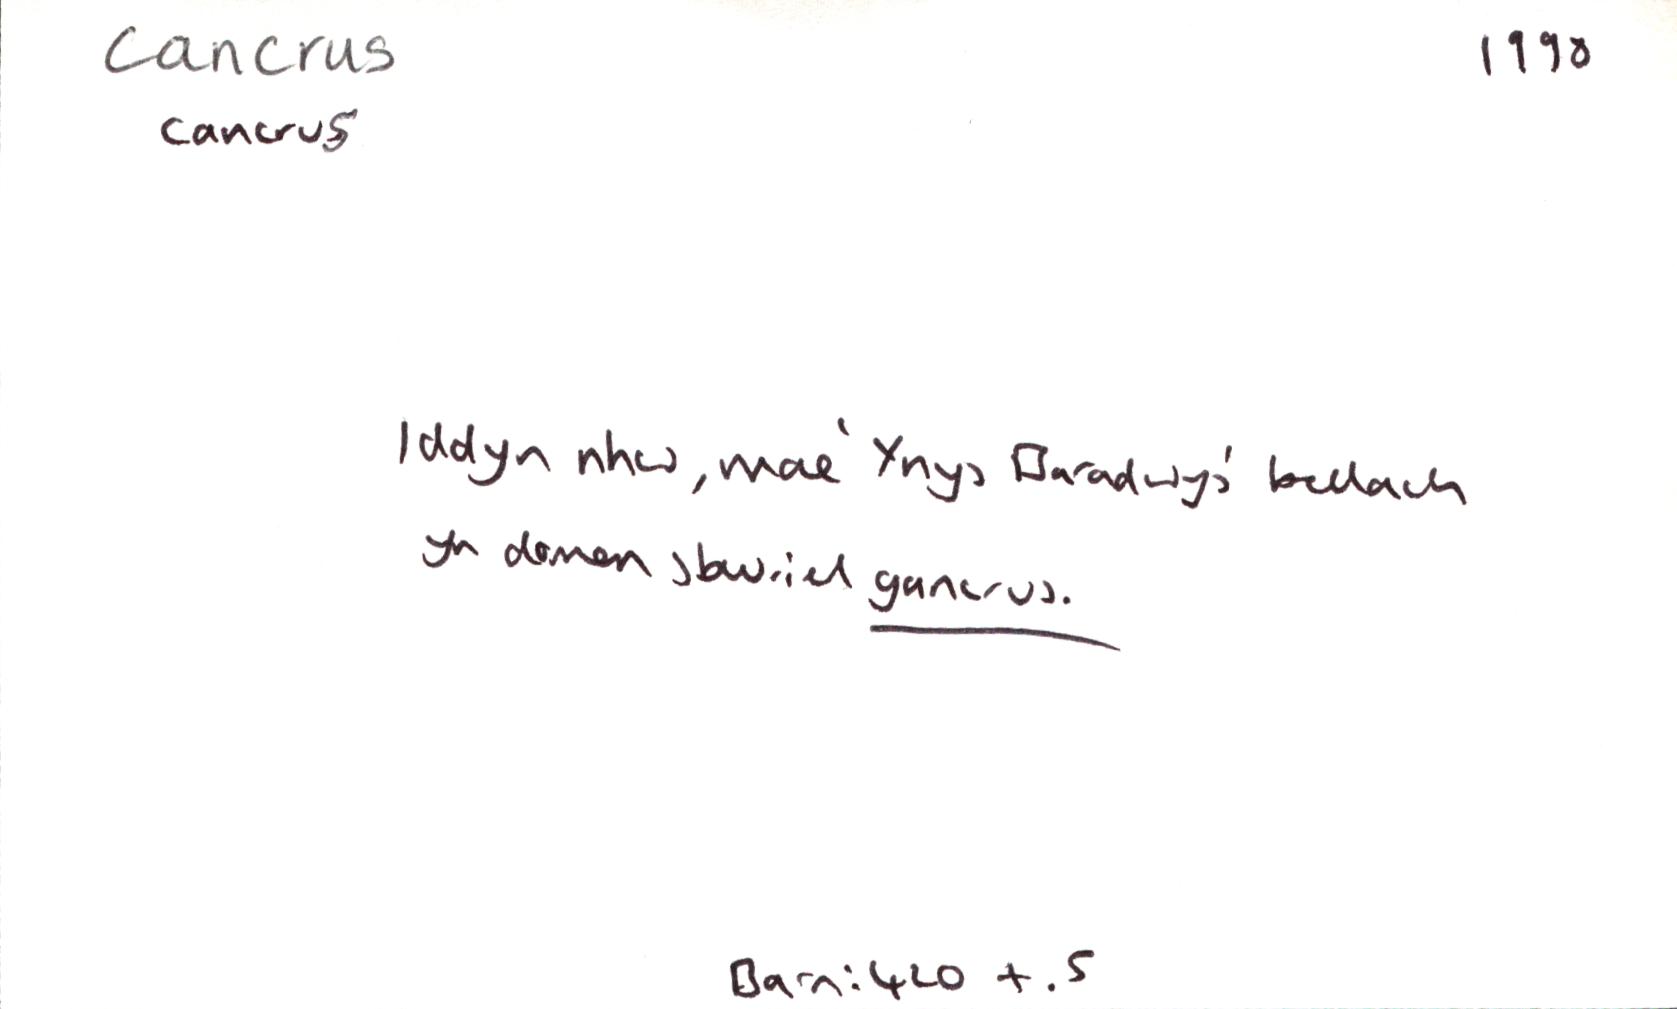 Cancrus
1998
cancrus
Iddyn nhw, mae 'Ynys Baradwys' bellach
yn domen sbwriel gancrus.
Barn: 420 t. 5